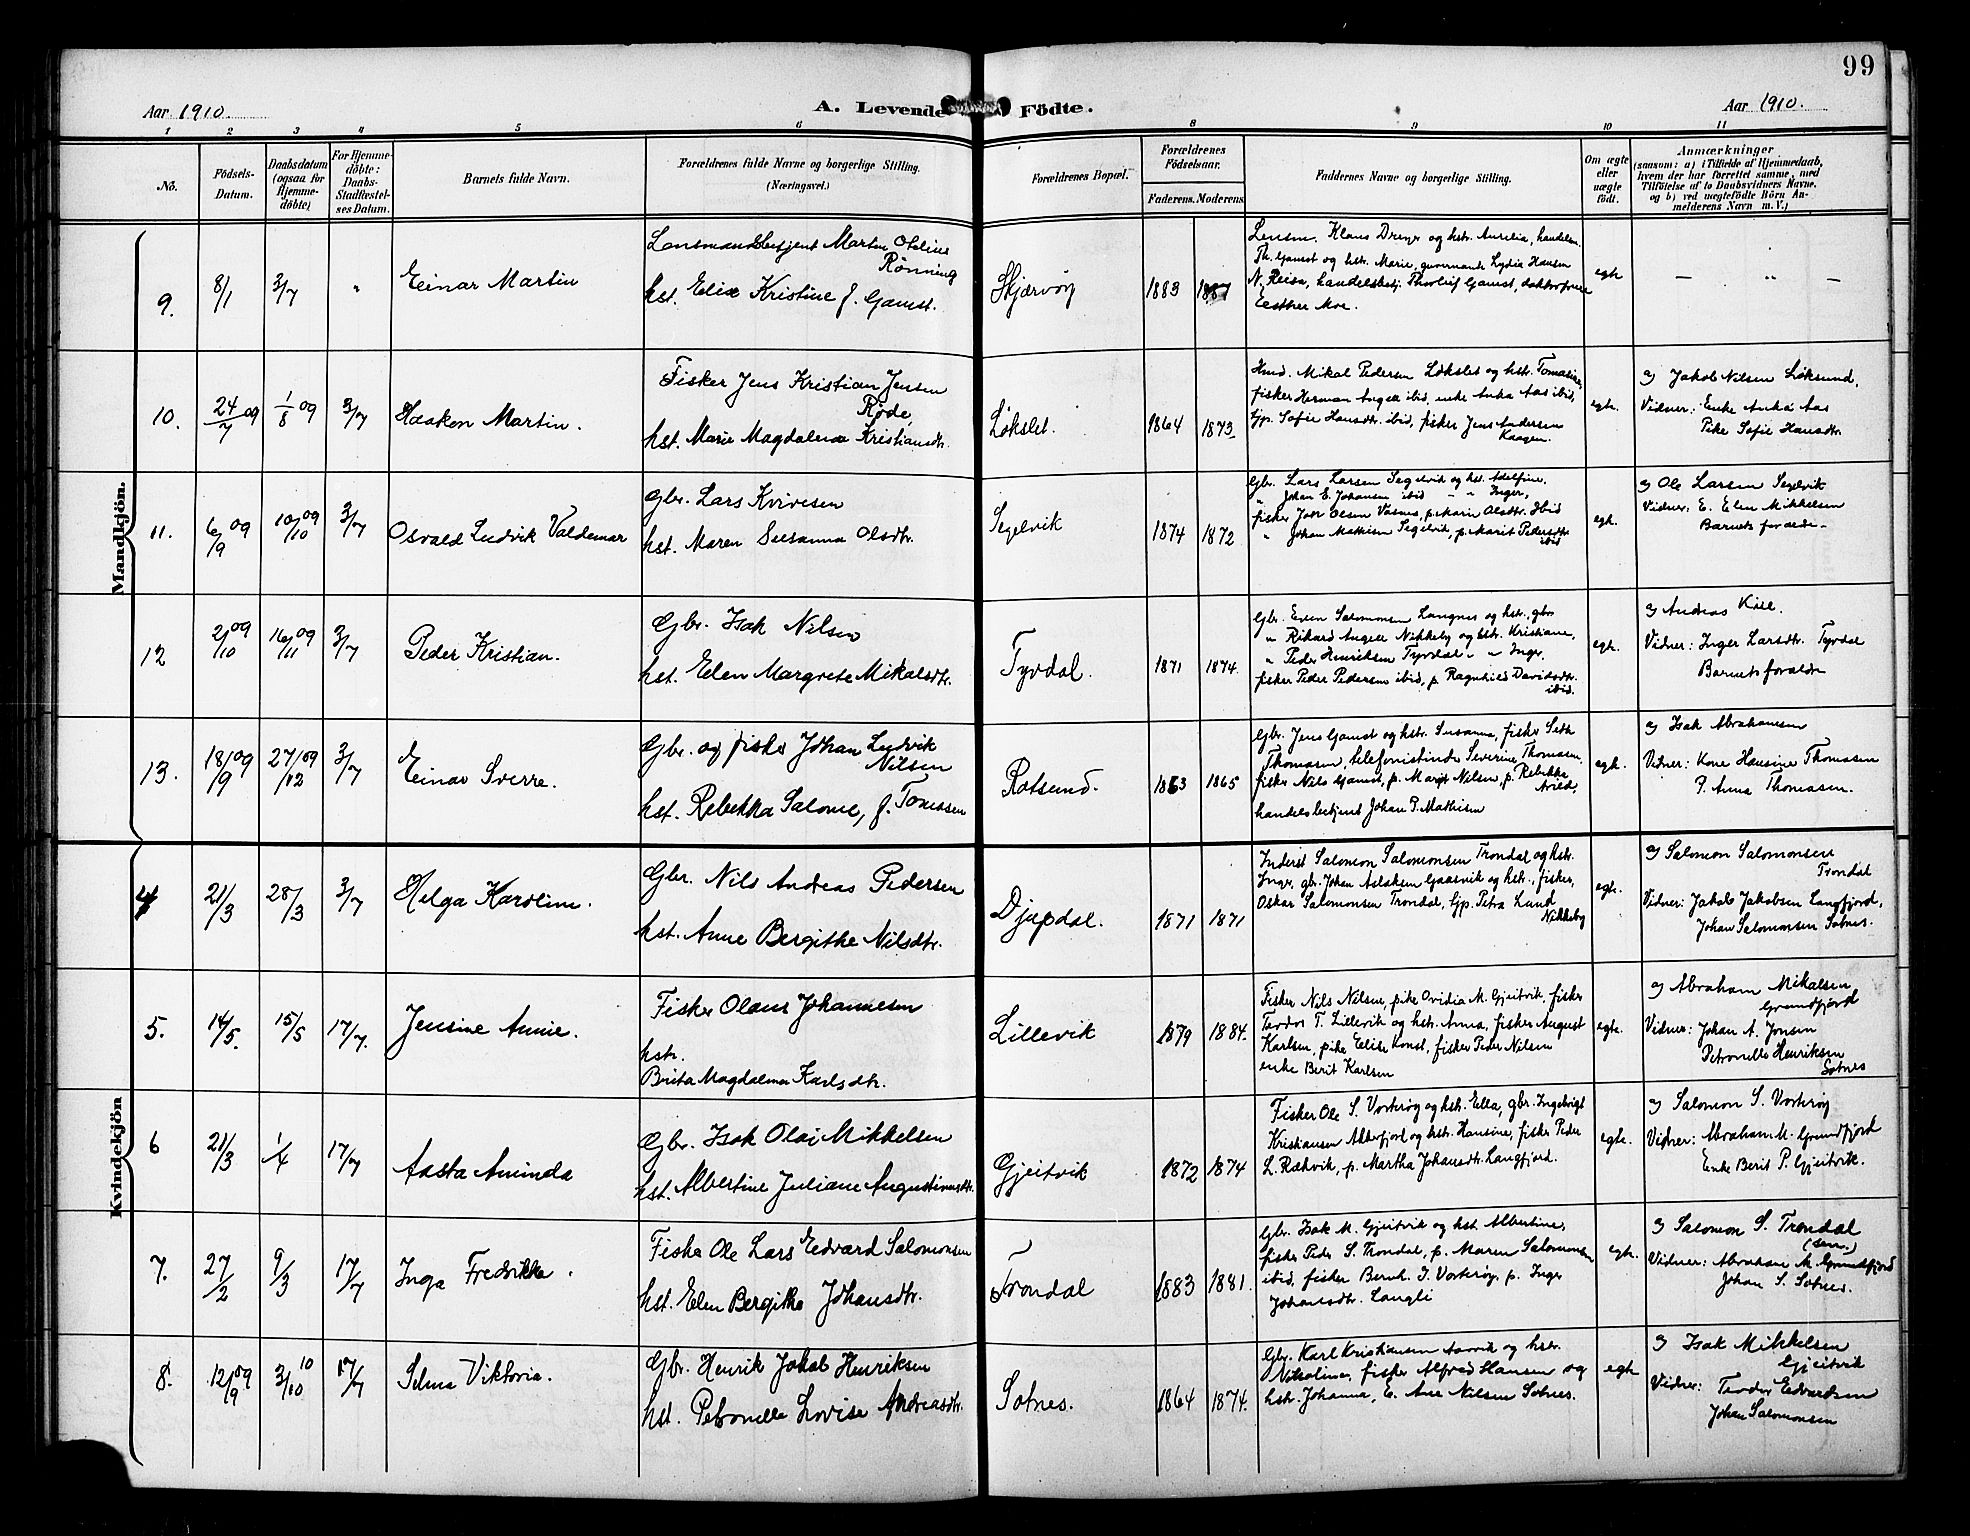 99
Aar 1910.
A. Levende Födte.
Aar 1910.
1 2 3 4 5 6 8 9 10 11
No.
Födsels-Datum.
Daabsdatum (ogsaa for Hjemme-döbte)
For Hjemme-döbte: Daabs-Stadfæstel-ses Datum.
Barnets fulde Navn.
Forældrenes fulde Navne og borgerlige Stilling.
(Næringsvei.)
Forældrenes Bopæl.
Forældrenes Födselsaar.
Faderens. Moderens.
Faddernes Navne og borgerlige Stilling.
Om ægte eller uægte födt.
Anmærkninger
(saasom: a) i Tilfælde af Hjemmedaab,
hvem der har forrettet samme, med
Tilföielse af to Daabsvidners Navne,
og b) ved uægtefödte Börn An-
melderens Navn m. V.)
Mandkjön.
9. 8/1 3/7 " Einar Martin
Lensmandsbetjent Martin Otelius
Rönning
hst. Elise Kristine f. Gamst.
Skjærvöy 1883 1887
Lensm. Klaus Dreyer og hstr. Aurelia, handelsm.
Th. Gamst og hstr. Marie, guvernante Lydia Hansen
N. Reisa, handelsbetj. Thorleif Gamst, doktorfrue
Eesther Moe.
egte
— " —
10. 24/7 09 1/8 09 3/7 Haakon Martin.
Fisker Jens Kristian Jensen
Röde,
hst. Marie Magdalena Kristiansdtr.
Lökslet. 1864 1873
Hmd. Mikal Pedersen Lökslet og hstr. Tomasine,
fisker Herman Angell ibid, enke Anka Aas ibid,
tjp. Sofie Hansdtr. ibid, fisker Jens Andersen
Kaagen.
egte.
a) Jakob Nilsen Löksund.
Vidner: Enke Anka Aas
Pike Sofie Hansdtr.
11. 6/9 09 10/10 09 3/7 Osvald Ludvik Valdemar
Gbr. Lars Kvivesen
hst. Maren Susanna Olsdtr.
Segelvik 1874 1872
Gbr. Lars Larsen Segelvik og hst. Adelfine,
" Johan E. Johansen ibid " " Inger,
fisker Joar Olsen Vasnes, p. Marin Olsdtr. Ibid
" Johan Mathisen Segelvik, p. Marit Pedersdtr.
ibid
egte.
a) Ole Larsen Segelvik
Vidner: E. Elen Mikkelsen
Barnets forælde-
12 2/10 09 16/11 09 3/7 Peder Kristian.
Gbr. Isak Nilsen
hst. Elen Margrete Mikalsdtr.
Tyvdal. 1871 1874.
Gbr. Even Salomonsen Langnes og hstr. gbr.
" Rikard Angell Nikkeby og hstr. Kristiane,
" Peder Henriksen Tyvdal " " Inger.
fisker Peder Pedersen ibid, p. Ragnhild Davidsdtr.
ibid.
egte.
a) Andreas Kiil.
Vidner: Inger Larsdtr. Tyvdal
Barnets forældre
13. 18/9 09 27/12 09 3/7 Einar Sverre.
Gbr. og fisker Johan Ludvik
Nilsen
hst. Rebekka Salome, f. Tomasen
Rotsund. 1863 1865
Gbr. Jens Gamst og hstr. Susanna, fisker Seth
Thomasen, telefonistinde Severine Thomasen,
fisker Nils Gamst, p. Marit Nilsen, p. Rebekka
Arild,
handelsbetjent Johan P. Mathisen
egte.
a) Isak Abrahamsen
Vidner: Kone Hansine Thomasen
P. Anna Thomasen.
Kvindekjön
4 21/3 28/3 3/7 Helga Karoline.
Gbr. Nils Andreas Pedersen
hst. Anne Bergithe Nilsdtr.
Djupdal. 1871 1871
Inderst Salomon Salomonsen Trondal og hstr.
Inger, gbr. Johan Aslaksen Gaasvik og hstr., fisker,
Oskar Salomonsen Trondal, tjp. Petra Lund
Nikkeby
egte.
a) Salomon Salomonsen
Trondal
Vidner: Jakob Jakobsen Langfjord,
Johan Salomonsen Sotnes.
5. 14/5. 15/5 17/7. Jensine Annie.
Fisker Olaus Johannesen
hstr.
Brita Magdalena Karlsdtr.
Lillevik 1879 1884.
Fisker Nils Nilsen, pike Ovidia M. Gjeitvik, fisker
Teodor T. Lillevik og hstr. Anna, fisker August
Karlsen, pike Elise Konst, fisker Peder Nilsen
enke Berit Karlsen
egte.
a) Abraham Mikalsen
Grundfjord
Vidner: Johan A. Jonsen
Petronelle Henriksen
Sotnes
6 21/3 1/4 17/7 Aasta Aminda
Gbr. Isak Olai Mikkelsen
hst. Albertine Juliane Augustinusdtr.
Gjeitvik 1872 1874
Fisker Ole S. Vorteröy og hstr. Ella, gbr. Ingebrigt
Kristiansen Akkefjord og hstr. Hansine, fisker Peder
L. Rækvik, p. Martha Johansdtr. Langfjord.
egte.
a) Salomon S. Vorteröy
Vidner: Abraham M. Grundfjord
Enke Berit P. Gjeitvik.
7. 27/2 9/3 17/7 Inga Fredrikke.
Fisker Ole Lars Edvard Salomonsen
hst. Elen Bergithe Johansdtr.
Trondal 1883 1881.
Gbr. Isak M. Gjeitvik og hst. Albertine,
fisker Peder S. Trondal, p. Maren Salomonsen
ibid, fisker Bernh. I. Vorteröy, p. Inger
Johansdtr. Langli
egte.
a) Salomon S. Trondal
(sen.)
Vidner: Abraham M. Grundfjord
Johan S. Sotnes.
8. 12/9 09 3/10 10 17/7 Selma Viktoria.
Gbr. Henrik Jakob Henriksen
hst. Petronelle Lovise Andreasdtr.
Sotnes. 1864 1874.
Gbr. Karl Kristiansen Aarvik og hstr.
Nikoline, fisker Alfred Hansen og
hstr. Johanna, E. Ane Nilsen Sotnes.
egte
a) Isak Mikkelsen
Gjeitvik
Vidner: Teodor Edvardsen
Johan Salomonsen